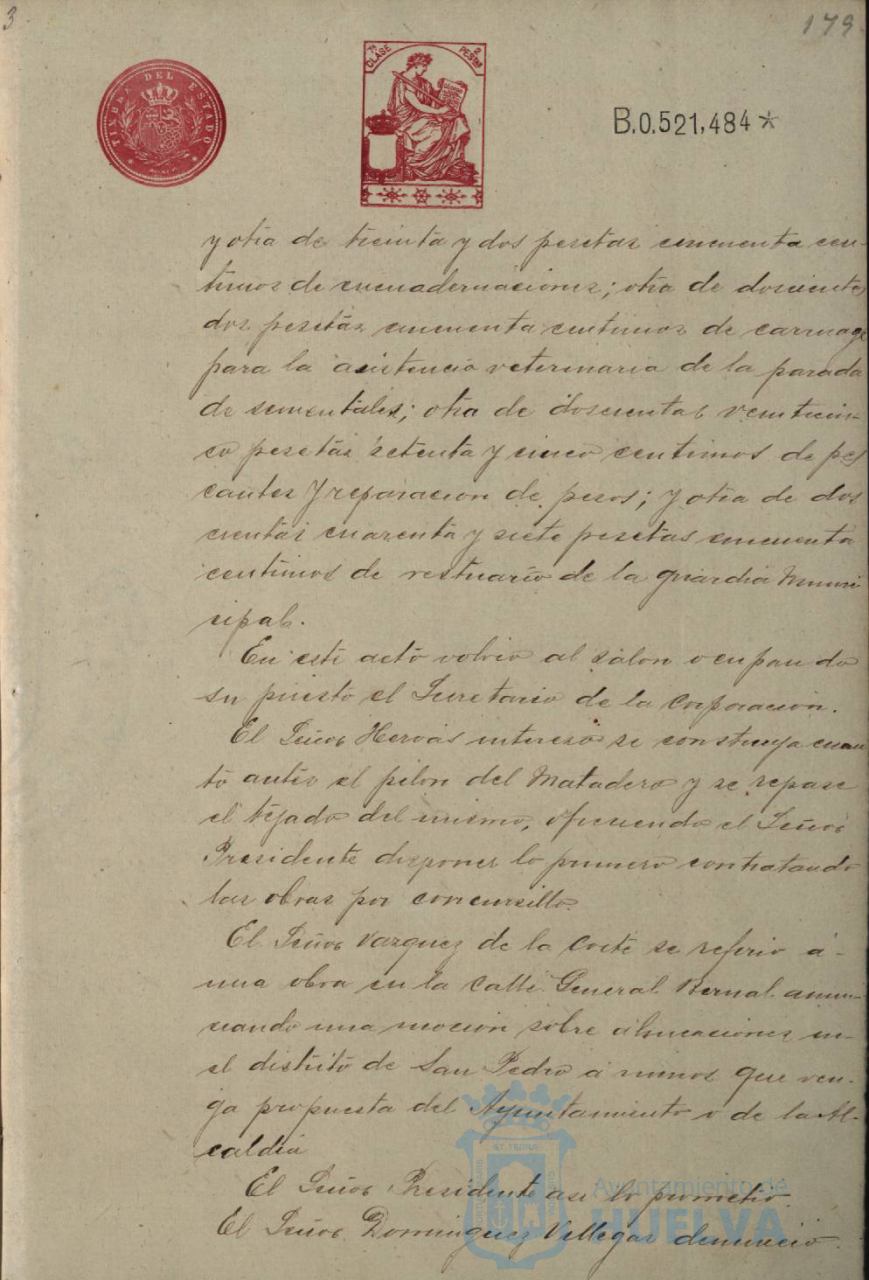 3
179
TIMBRE DEL ESTADO
7ª CLASE 2 PESETAS
B.0.521,484*
y otra de treinta y dos pesetas cincuenta cen-
timos de encuadernaciones; otra de doscientas
dos pesetas cincuenta centimos de carruage
para la asistencia veterinaria de la parada
de sementales; otra de doscientas veinticin-
co pesetas setenta y cinco centimos de pes
cantes y reparacion de pesos; y otra de dos
cientas cuarenta y siete pesetas cincuenta
centimos de vestuario de la guardia Muni
cipal.
En este acto volvio al salon ocupando
su puesto el Secretario de la Corporación.
El Señor Hervás interesó se construya cuan
to antes el pilon del Matadero y se repase
el tejado del mismo, ofreciendo el Señor
Presidente disponer lo primero contratando
las obras por concursillo.
El Señor Vazquez de la Corte se refirio á
una obra en la Calle General Bernal anun-
ciando una mocion sobre alineaciones en
el distrito de San Pedro á menos que ven-
ga propuesta del Ayuntamiento o de la Al-
caldia
El Señor Presidente asi lo prometió.
El Señor Dominguez Villegas denunció
Ayuntamiento de
HUELVA